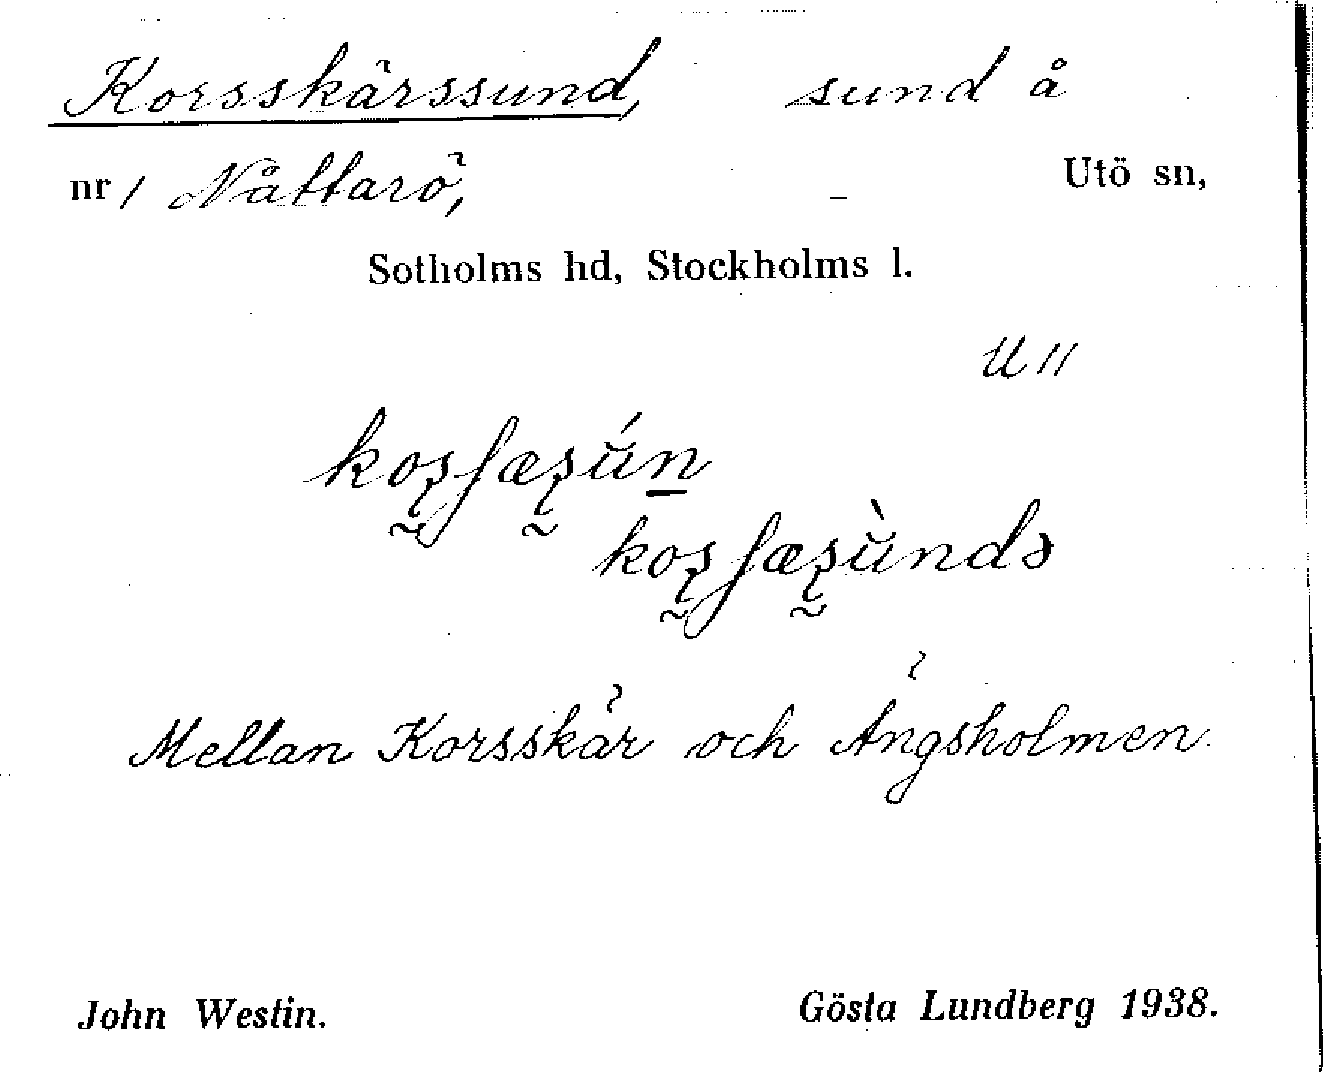 Korsskärssund, sund å
nr 1 Nåttarö, Utö sn,
Sotholms hd, Stockholms l.
U 11
Mellan Korsskär och Ängsholmen.
John Westin. Gösta Lundberg 1938.